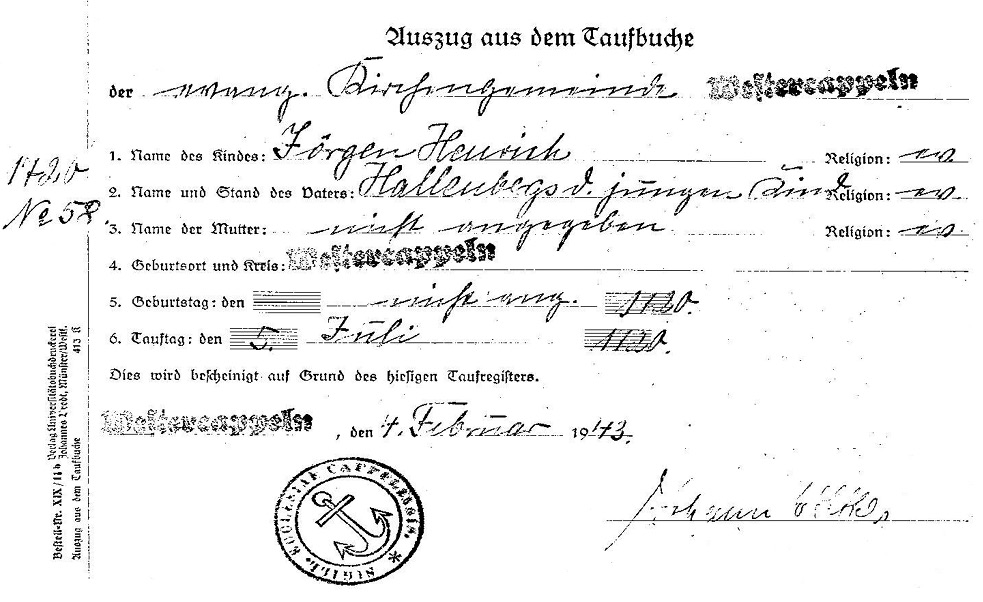 Auszug aus dem Taufbuche
der evang. Kirchengemeinde Westercappeln
1720
No 58.
1. Name des Kindes: Jörgen Henrich Religion: ev.
2. Name und Stand des Vaters: Hallenbergs d. jungen Kind Religion: ev.
3. Name der Mutter: nicht angegeben Religion: ev.
4. Geburtsort und Kreis: Westercappeln
5. Geburtstag: den nicht ang. 1720.
6. Tauftag: den 5. Juli 1720.
Dies wird bescheinigt auf Grund des hiesigen Taufregisters.
Westercappeln, den 4. Februar 1943.
SIGILL. ECCLESIAE CAPPELENSIS. *
Johann
Bestell-Nr. XIX/14 b Verlag Universitätsbuchdruckerei
Auszug aus dem Taufbuche Johannes Bredt, Münster/Westf.
413 K